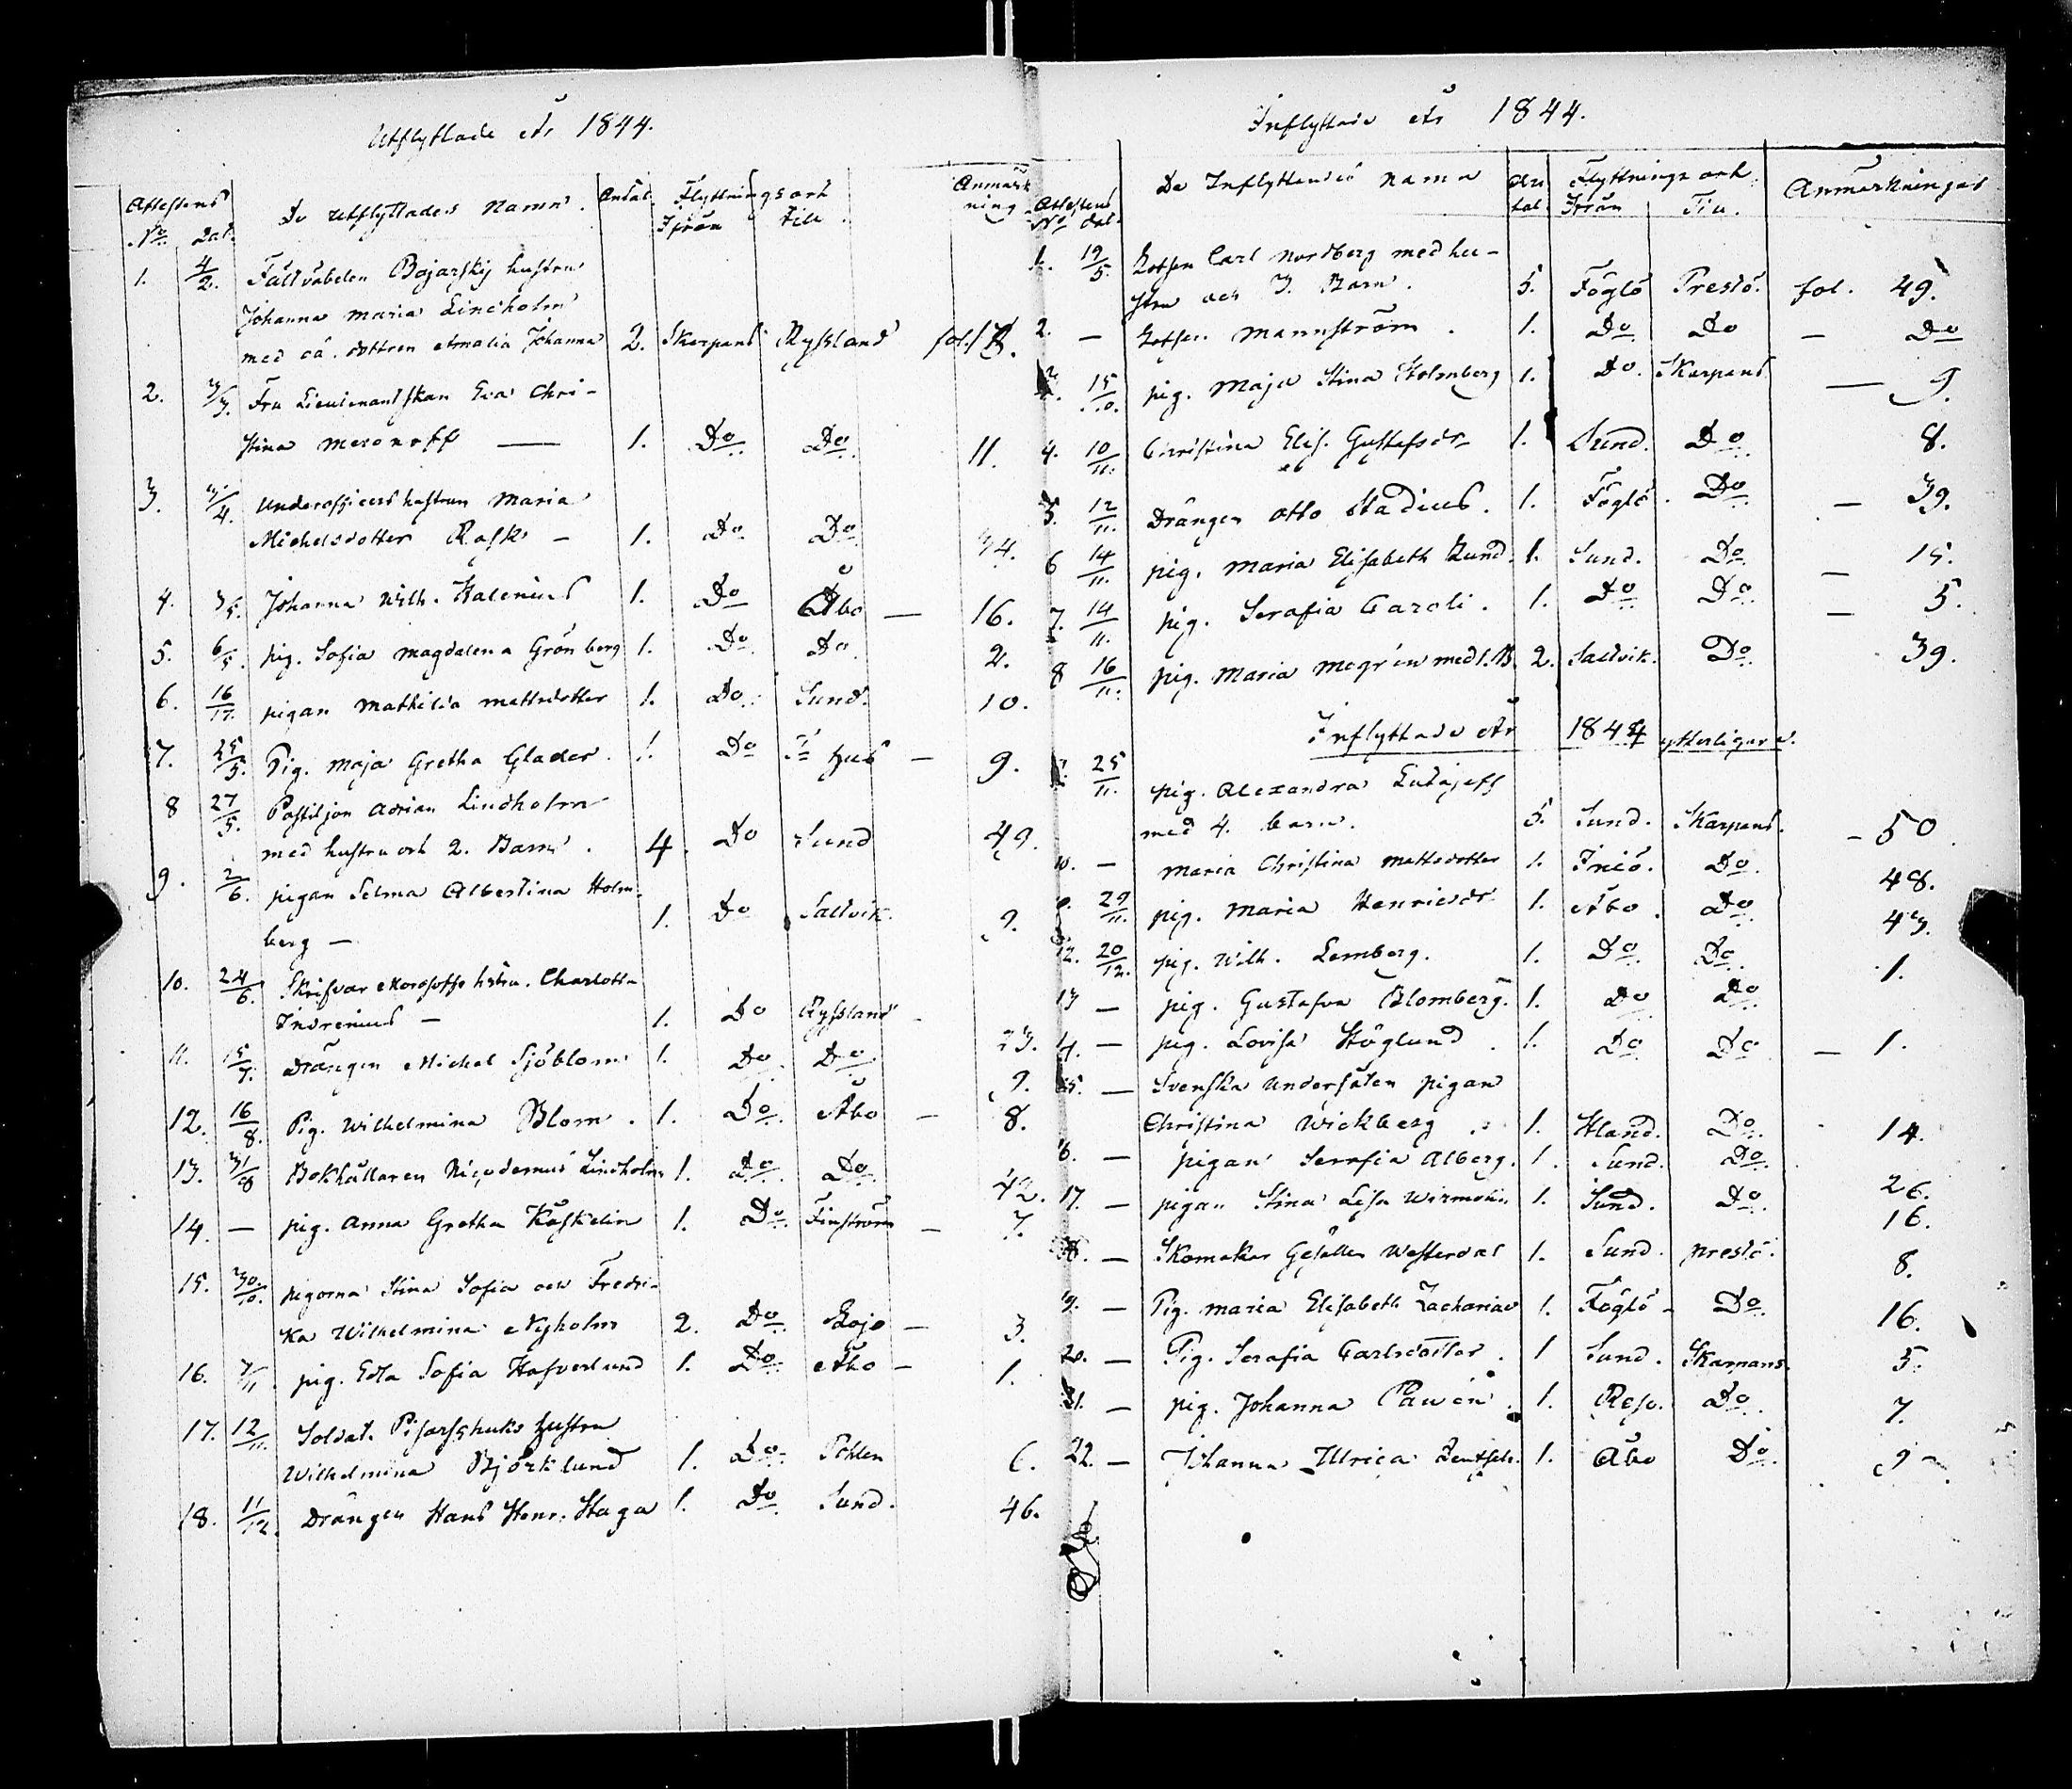 Utflyttade År 1844.
Attestens No Dat. De Utflyttades Namn. Antal. Flyttningsort Ifrån Till Anmärkning
1. 4/2. Fältväbelen Bojarskij hustru
Johanna Maria Lindholm
med oä. dottren Amalia Johanna 2. Skarpans Ryssland fol.
2. 3/3. Fru Lieutenantskan Eva Chri-
stina Meronoff — 1. Do Do 11.
3. 3/4. Underofficers hustrun Maria
Michelsdotter Rask — 1. Do Do 34.
4. 3/5. Johanna Wilh. Halenius 1. Do Åbo — 16.
5. 6/5. pig. Sofia Magdalena Grönberg 1. Do Do 2.
6. 16/17. pigan Mathilda Mattsdotter 1. Do Sund. 10.
7. 25/5. Pig. Maja Gretha Glader. 1. Do — 9.
8 27/5. Postiljon Adrian Lindholm
med hustru och 2. Barn. 4. Do Sund 49.
9. 2/6. pigan Selma Albertina Holm-
berg — 1. Do Saltvik. 9.
10. 24/6. Skrifvar hstru. Charlotta
Indrenius — 1. Do Ryssland — 23.
11. 15/7. Drängen Michel Sjöblom 1. Do Do 9.
12. 16/8. Pig. Wilhelmina Blom. 1. Do Åbo — 8.
13. 31/8 Bokhållaren Nicodemus Lindholm 1. Do Do 42.
14. — pig. Anna Gretha Käskelin 1. Do Finström — 7.
15. 30/10. pigorna Stina Sofia och Fredri-
ka Wilhelmina Nyholm 2. Do Bojo — 3.
16. 7/11. pig. Edla Sofia Hafverlund 1. Do Åbo — 1.
17. 12/11. Soldat. hustru
Wilhelmina Björklund 1. Do Pohlen 6.
18. 11/12. Drängen Hans Henr. Haga 1. Do Sund. 46.
Inflyttade År 1844.
Attestens No dat. De Inflyttandes Namn Antal. Flyttnings ort Ifrån Till. Anmärkningar
1. 19/5. Lotsen Carl Nordberg med hu-
stru och 3. Barn. 5. Föglö Prestö. fol. 49.
2. — Lotsen Mannström. 1. Do Do — Do
3. 15/10. pig. Maja Stina Holmberg 1. Do. Skarpans — 9.
4. 10/11. Christina Elis. Gustafsdr 1. Sund. Do 8.
5. 12/11. Drängen Otto Stadius. 1. Föglö. Do — 39.
6 14/11. pig. Maria Elisabeth Lund. 1. Sund. Do — 15.
7. 14/11. pig. Serafia Caroli. 1. Do Do — 5.
8 16/11. pig. Maria Mogrén med 1. B. 2. Saltvik. Do 39.
Inflyttade År 1844 ytterligare.
25/11. pig. Alexandra
med 4. barn. 5. Sund. Skarpans. — 50
10. — Maria Christina Mattsdotter 1. Iniö. Do. 48.
29/11. pig. Maria Henricsdr 1. Åbo. Do 43.
12. 20/12. pig. Wilh. Lemberg. 1. Do Do 1.
13 — pig. Gustafva Blomberg. 1. Do Do
14. — pig. Lovisa Höglund. 1. Do Do — 1.
15. — Svenska Undersåten pigan
Christina Wickberg 1. Hland. Do 14.
16. — pigan Serafia Alberg. 1. Sund. Do 26.
17. — pigan Stina Lisa 1. Sund. Do 16.
18. — Skomakar Gesällen Westerdal 1. Sund. Prestö. 8.
19. — Pig. Maria Elisabeth Zacharias 1. Föglö — Do. 16.
20. — Pig. Serafia Carlsdotter. 1 Sund. Skarpans. 5.
21. — pig. Johanna Pauén. 1. Reso. Do 7.
22. — Johanna Ulrica 1. Åbo Do. 9